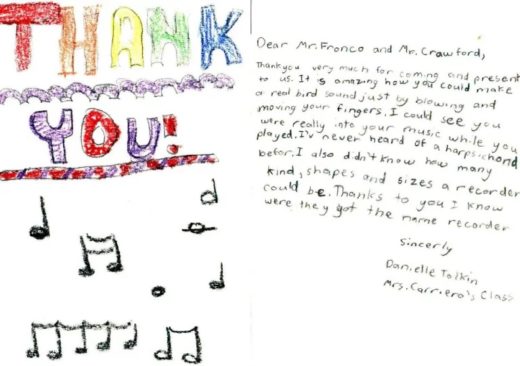 THANK
YOU!
Dear Mr. Franco and Mr. Crawford,
Thankyou very much for coming and present
to us. It is amazing how you could make
a real bird sound just by blowing and
moving your fingers. I could see you
were really into your music while you
played. I'v never heard of a harpsichord
befor. I also didn't know how many
kind, shapes and sizes a recorder
could be. Thanks to you I know
were they got the name recorder
Sincerly
Danielle Tolkin
Mrs. Carriero's Class